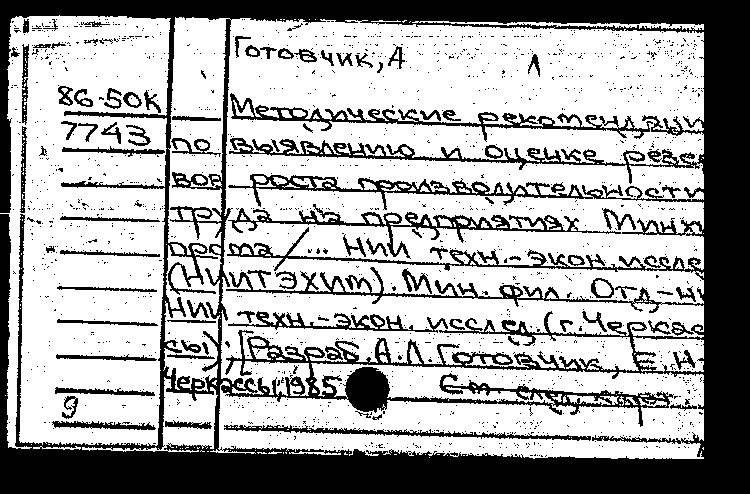 Готовчик, А Л
86-50К Методические рекомендации
7743 по выявлению и оценке резер
вов роста производительности
труда на предприятиях Минхи
прома / ... НИИ техн.-экон. иссле
(НИИТЭХИМ). Мин. фил. Отд-ни
НИИ техн.-экон. исслед. (г. Черкас
сы); [Разраб. А.Л. Готовчик, Е.Н.
Черкассы, 1985 См след. карт.
9